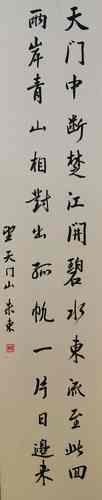 天门中断楚江開碧水東流至此回
兩岸青山相對出孤帆一片日邊来
望天门山 东東